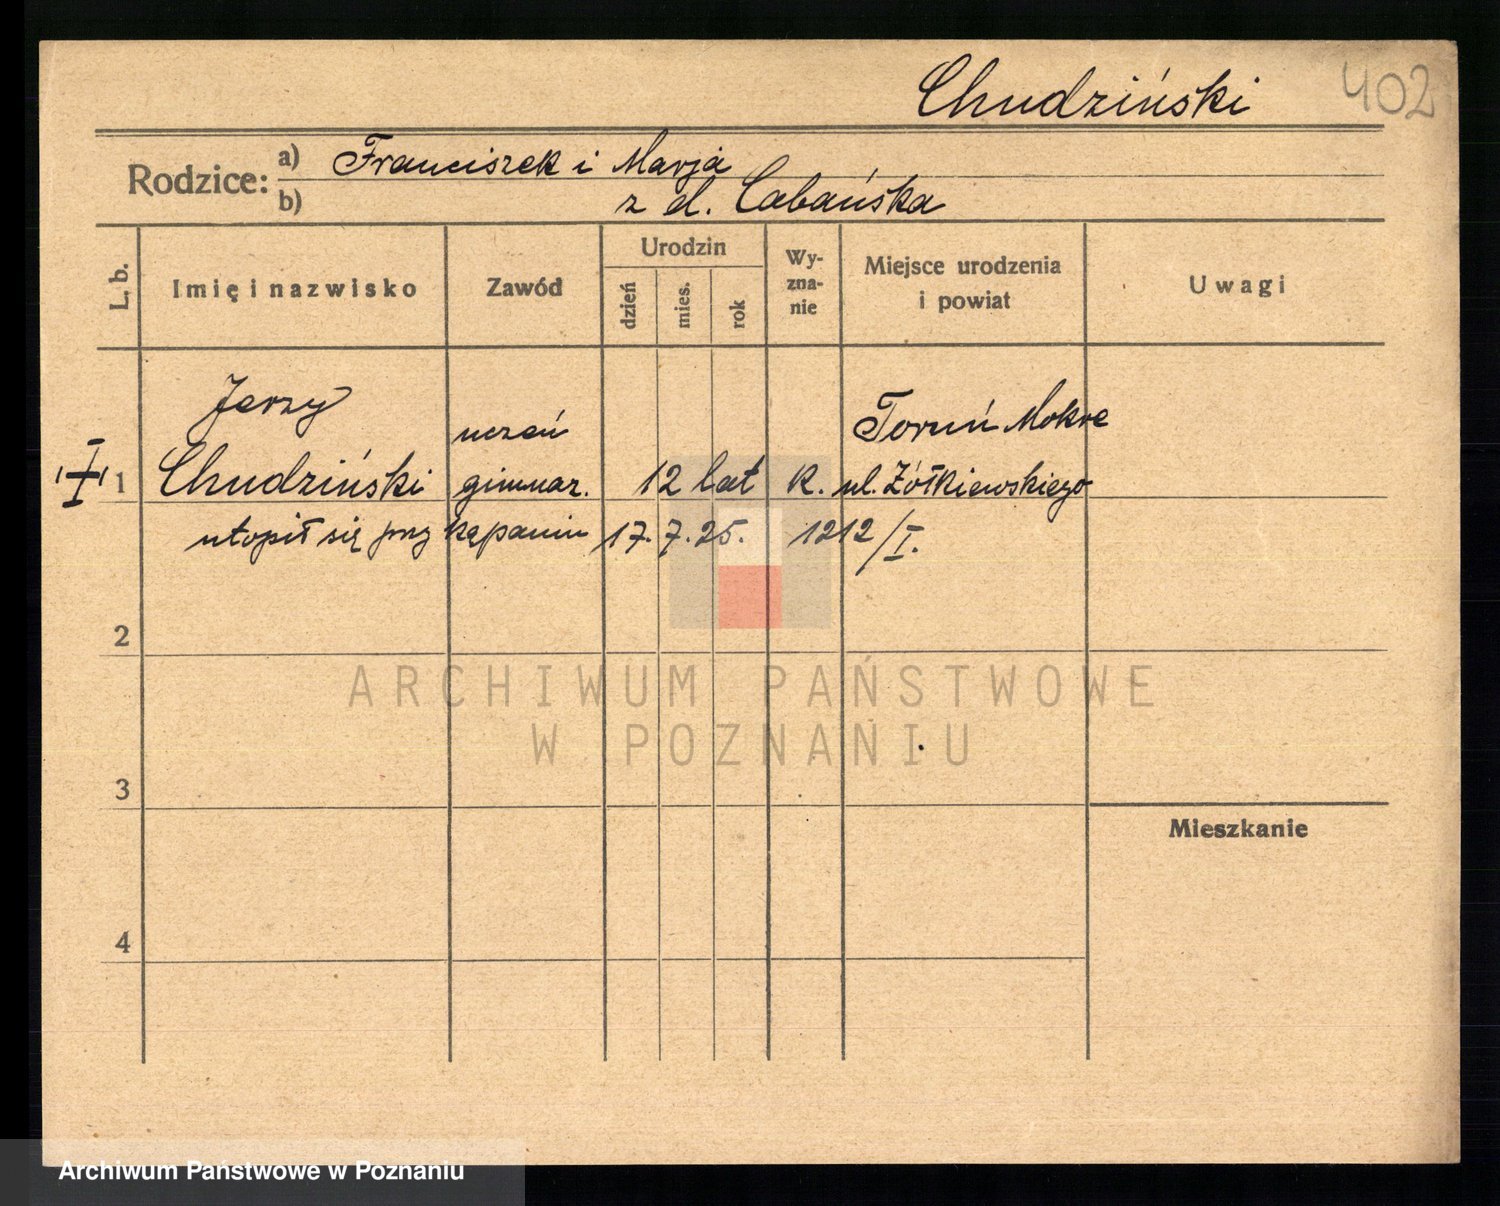 Chudziński
402
Rodzice:
a) Franciszek i Marja
b) z d. Cabańska
L. b.
Imię i nazwisko
Zawód
Urodzin
dzień
mies.
rok
Wy-
zna-
nie
Miejsce urodzenia
i powiat
Uwagi
Jerzy
uczeń
Toruń Mokre
1 Chudziński gimnaz. 12 lat k. ul. Żółkiewskiego
utopił się przy kąpaniu 17. 7. 25. 1212/I.
2
ARCHIWUM PAŃSTWOWE
W POZNANIU
3
Mieszkanie
4
Archiwum Państwowe w Poznaniu